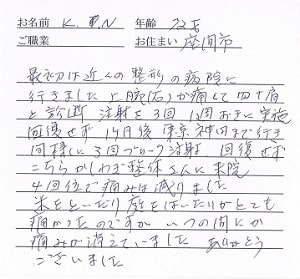 お名前 K.M.N 年齢 72才
ご職業 お住まい 座間市
最初は近くの整形の病院に
行きました 上腕(右)が痛くて四十肩
と診断 注射を3回 1週おきに実施
回復せず 1ヶ月後 東京神田まで行き
同様に3回ブロック注射 回復せず
こちらかしわぎ整体さんに来院
4回位で痛みは減りました
米をといだり庭をはいたりがとても
痛かったのですが いつの間にか
痛みが消えていました ありがとう
ございました